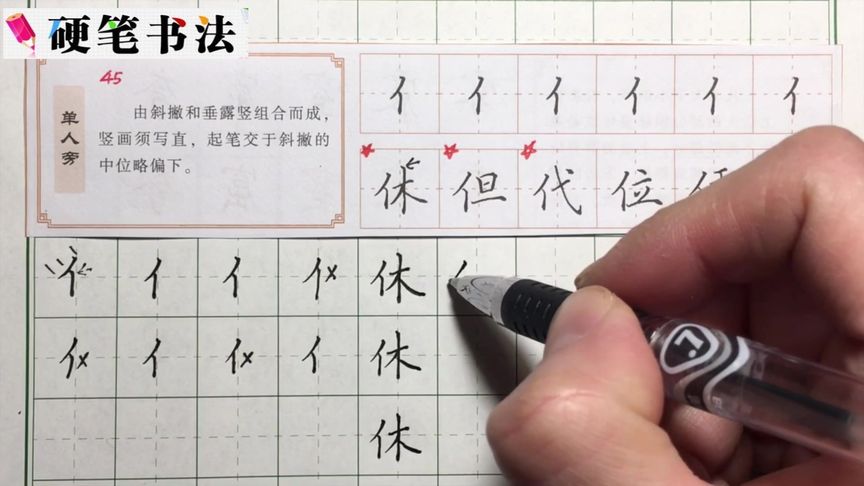 硬笔书法
45
单人旁
由斜撇和垂露竖组合而成，
竖画须写直，起笔交于斜撇的
中位略偏下。
亻 亻 亻 亻 亻 亻
休 但 代 位
亻 亻 亻 亻× 休
亻× 亻 亻× 亻 休
休